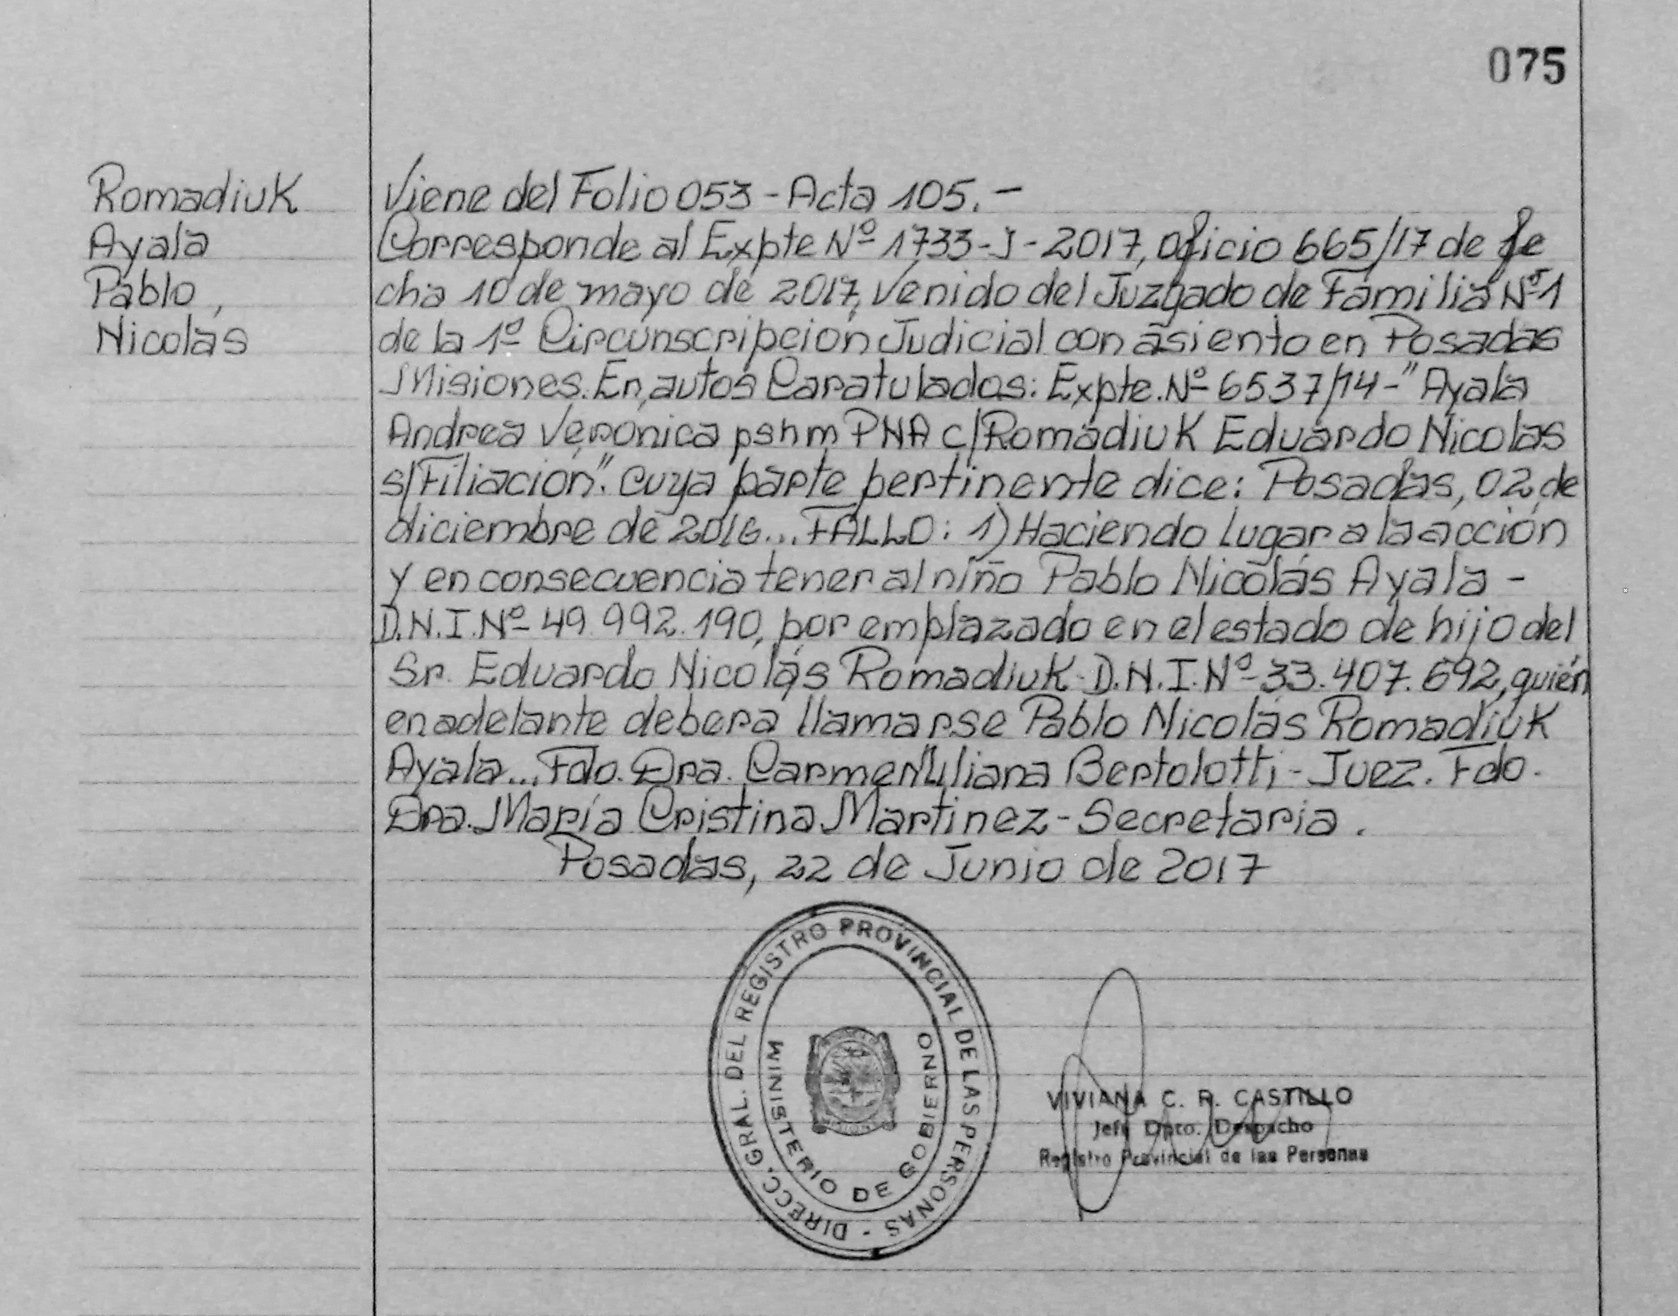 075
Romadiuk
Ayala
Pablo,
Nicolás
Viene del Folio 053 - Acta 105. -
Corresponde al Expte Nº 1733-J-2017, oficio 665/17 de fe
cha 10 de mayo de 2017, venido del Juzgado de Familia Nº1
de la 1º Circunscripción Judicial con asiento en Posadas
Misiones. En autos Caratulados: Expte. Nº 6537/14 - "Ayala
Andrea Veronica pshm PNA c/Romadiuk Eduardo Nicolas
s/Filiación". cuya parte pertinente dice: Posadas, 02 de
diciembre de 2016... FALLO: 1) Haciendo lugar a la acción
y en consecuencia tener al niño Pablo Nicolás Ayala -
D.N.I. Nº 49.992.190, por emplazado en el estado de hijo del
Sr. Eduardo Nicolás Romadiuk D.N.I. Nº 33.407.692, quién
en adelante debera llamarse Pablo Nicolás Romadiuk
Ayala... Fdo. Dra. Carmen Liliana Bertolotti - Juez. Fdo.
Dra. María Cristina Martinez - Secretaria.
Posadas, 22 de Junio de 2017
DIRECC. GRAL. DEL REGISTRO PROVINCIAL DE LAS PERSONAS -
MINISTERIO DE GOBIERNO
VIVIANA C. R. CASTILLO
Jefe Dpto. Despacho
Registro Provincial de las Personas